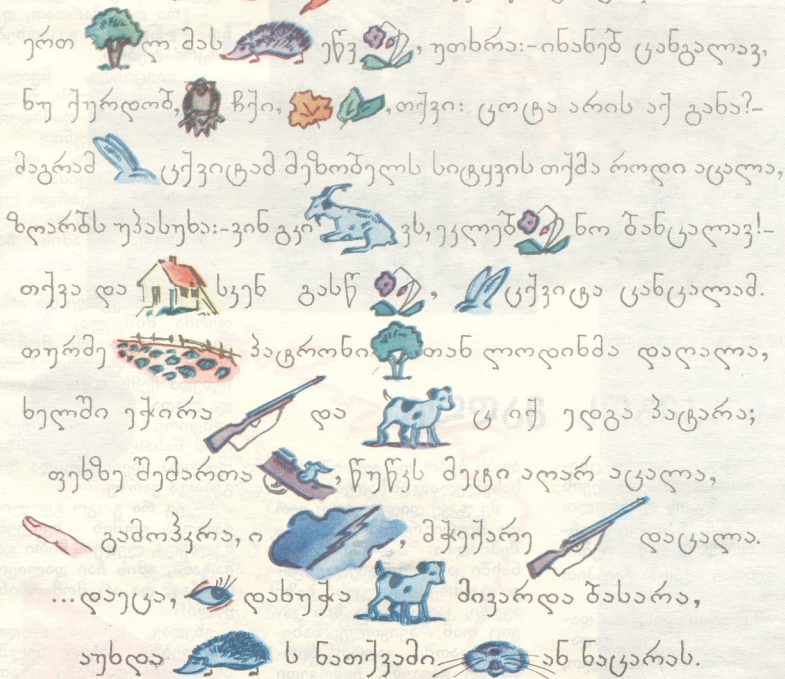 ერთ ლ მას ეწვ , უთხრა:-ინანებ ცანგალავ,
ნუ ქურდობ, ჩქი, ,თქვი: ცოტა არის აქ განა?-
მაგრამ ცქვიტამ მეზობელს სიტყვის თქმა როდი აცალა,
ზღარბს უპასუხა:-ვინ გკი ვს, ეკლებ ნო ბანცალავ!-
თქვა და სკენ გასწ , ცქვიტა ცანცალამ.
თურმე პატრონი თან ლოდინმა დაღალა,
ხელში ეჭირა და ც იქ ედგა პატარა;
ფეხზე შემართა , წუწკს მეტი აღარ აცალა,
გამოჰკრა, ი , მჭექარე დაცალა.
...დაეცა, დახუჭა მივარდა ბასარა,
აუხდა ს ნათქვამი ან ნაცარას.